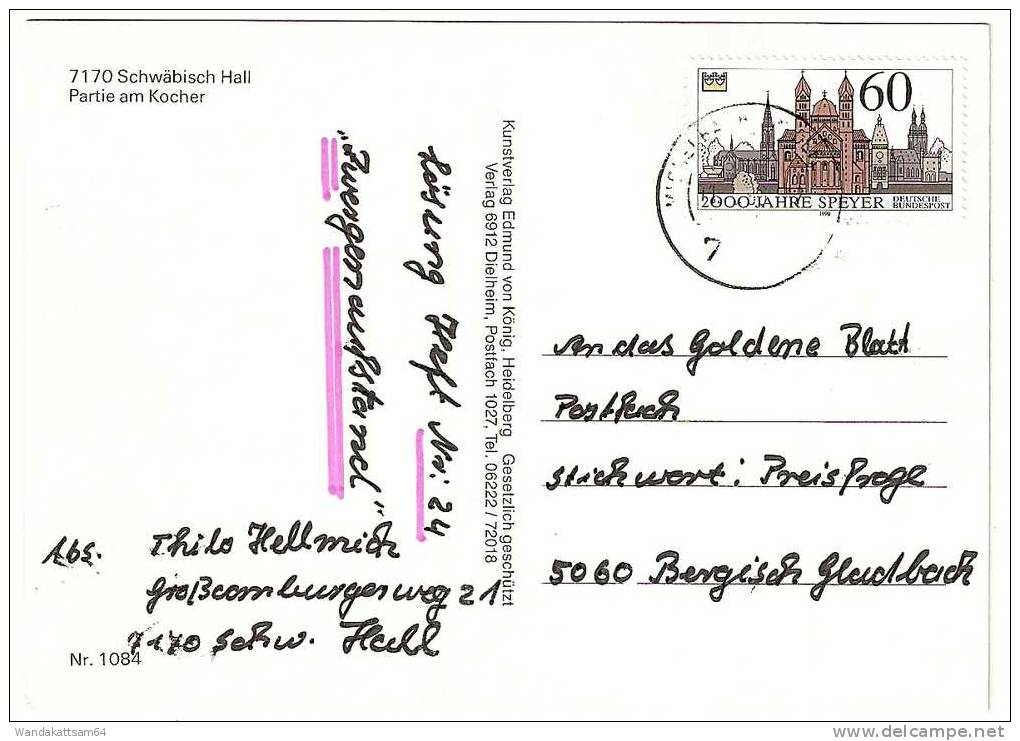 7170 Schwäbisch Hall
Partie am Kocher
60
2000 JAHRE SPEYER
DEUTSCHE
BUNDESPOST
1990
7
Lösung Heft Nr: 24
„Zwergenaufstand"
Kunstverlag Edmund von König, Heidelberg Gesetzlich geschützt
Verlag 6912 Dielheim, Postfach 1027, Tel. 06222 / 72018
An das Goldene Blatt
Postfach
Stichwort: Preisfrage
5060 Bergisch Gladbach
Abs. Thilo Hellmich
Großcomburgerweg 21
7170 Schw. Hall
Nr. 1084
Wandakattsam64
delcampe.net